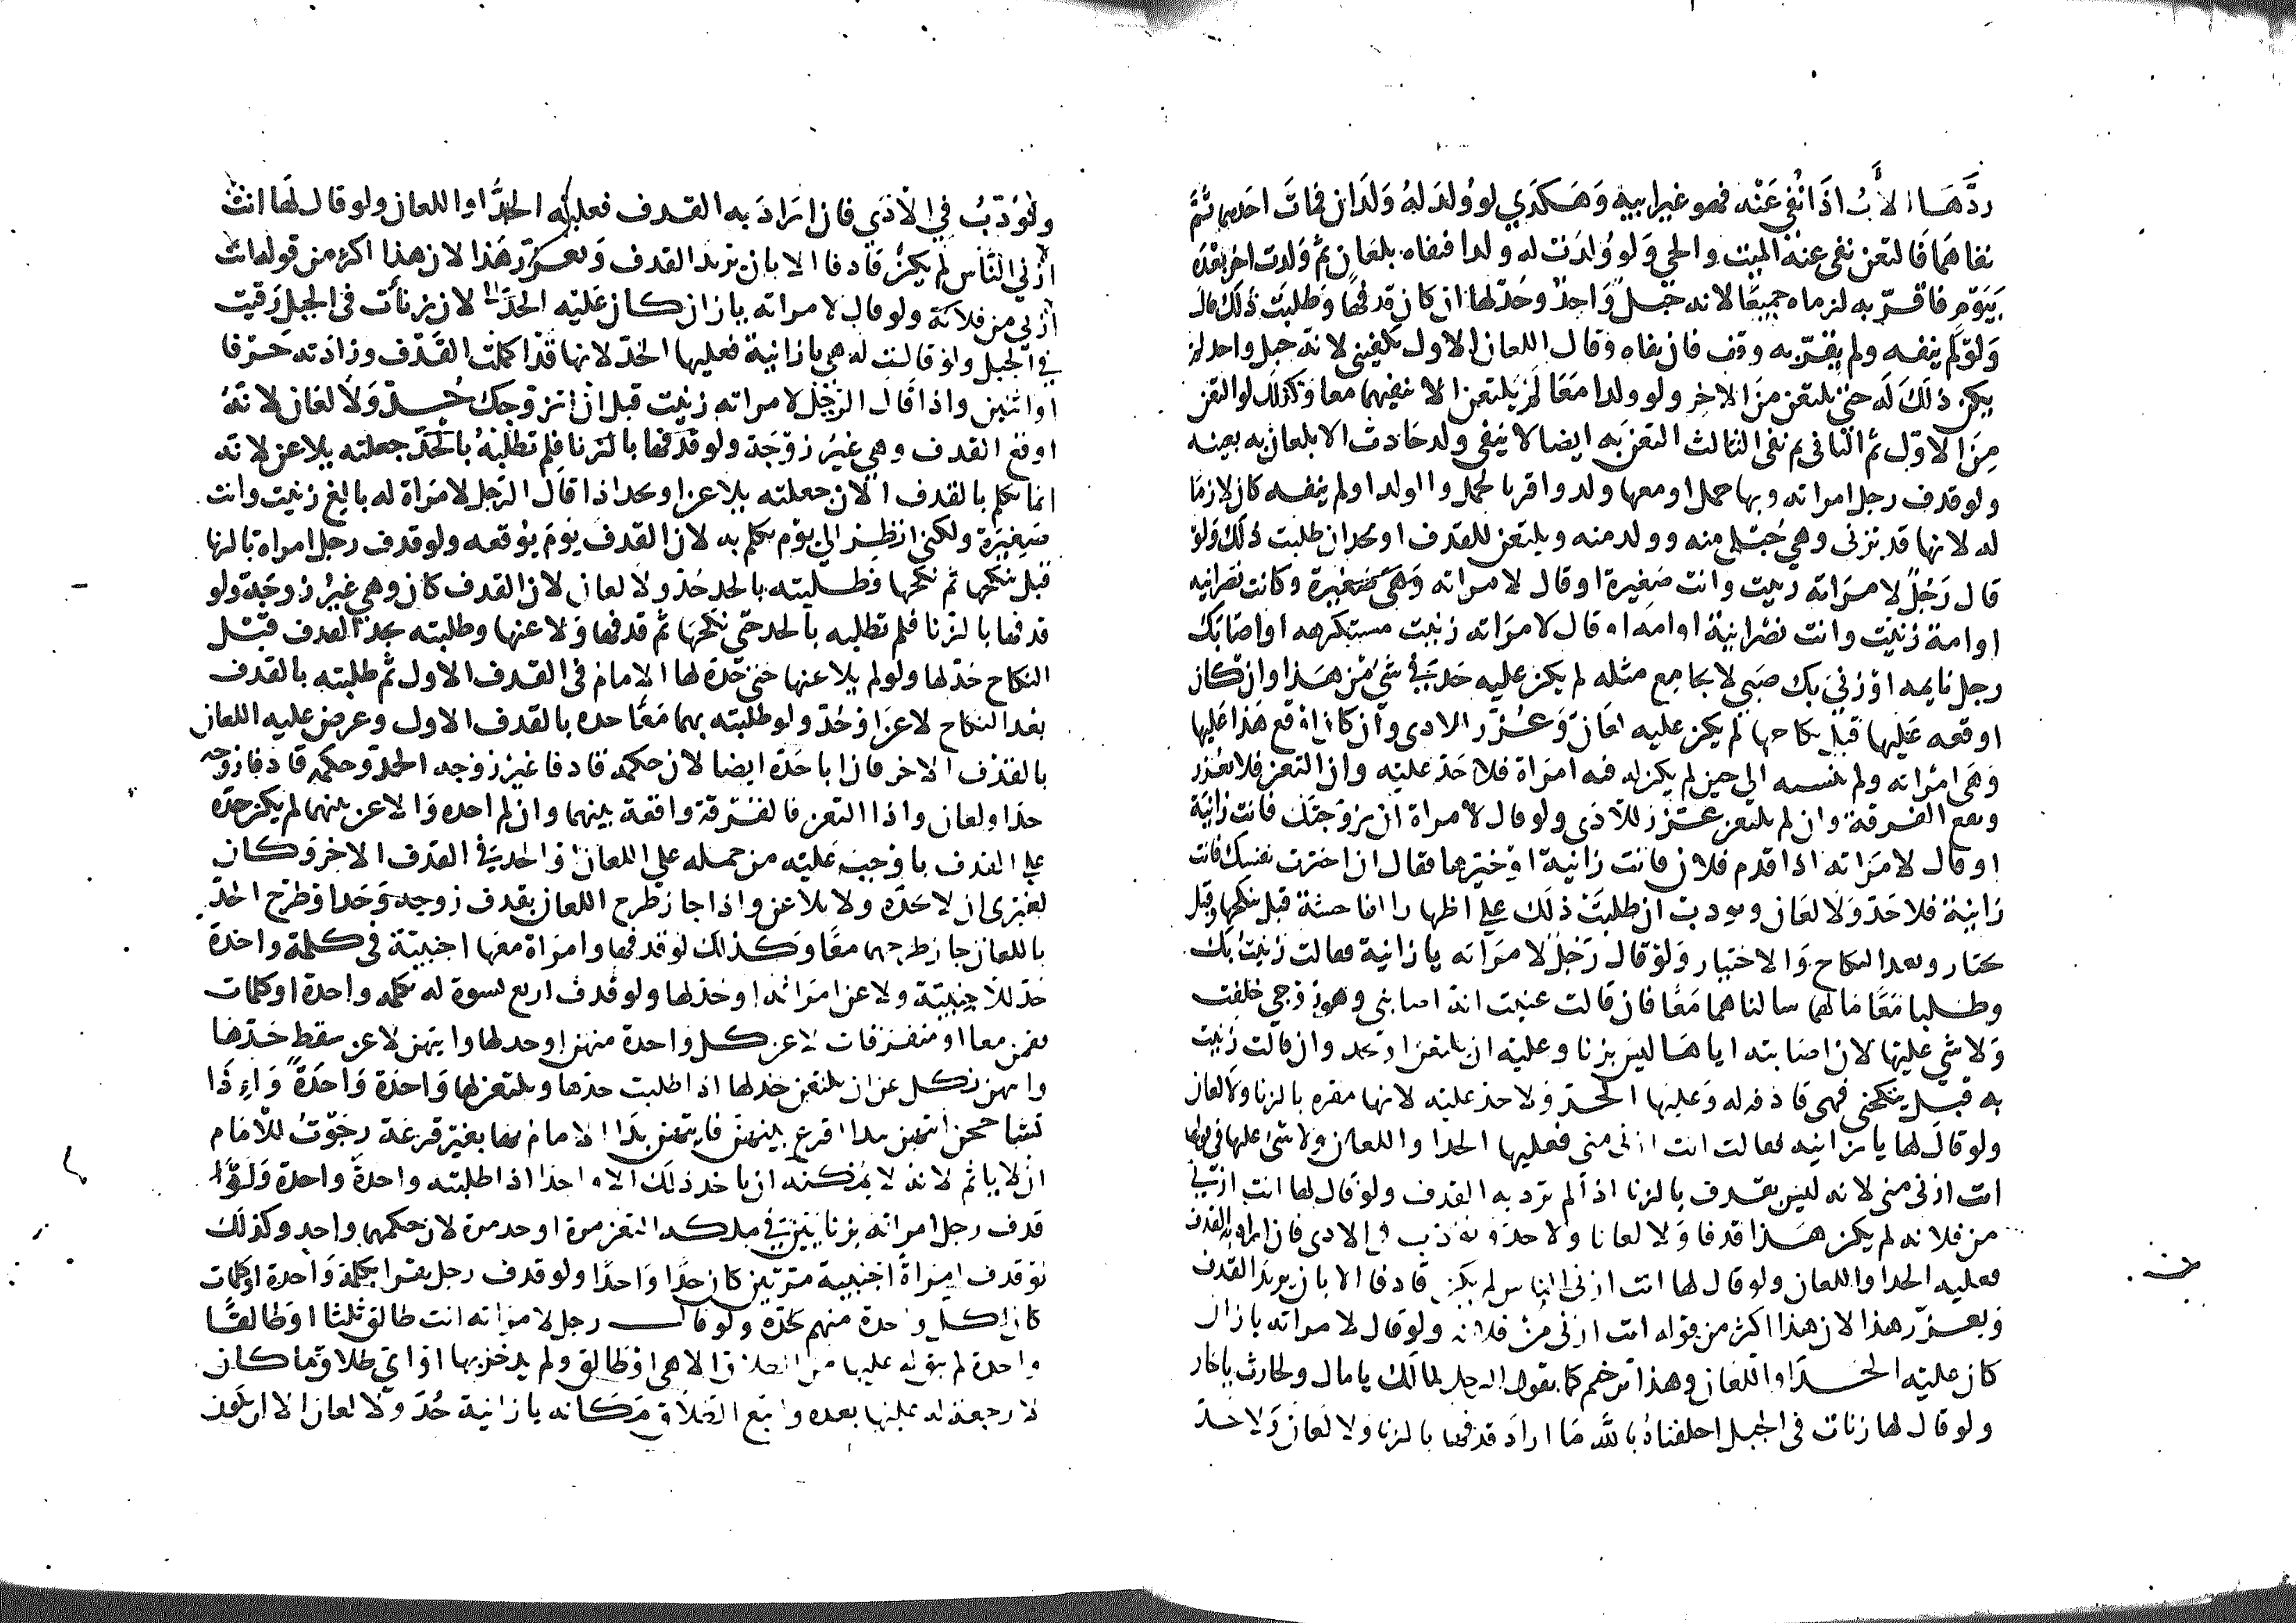 ردها الاب اذا نفي عنه فهو غير ابيه وهكدي لو ولد له ولدان فمات احدهما ثم
نفاهما فالتعن نفى عنه الميت والحي ولو ولدت له ولدا فنفاه بلعان ثم ولدت اخر بعده
بيوم فاقر به لزماه جميعا لانه حبل واحد وحد لها ان كان قدفها وطلبت ذلك قال
ولو لم ينفه ولم يقر به وقف فان نفاه وقال اللعان الاول يكفيني لانه حبل واحد لم
يكن ذلك له حتى يلتعن من الاخر ولو ولدا معا لم يلتعن الا بنفيهما معا وكذلك لو التعن
من الاول ثم الثاني ثم نفى الثالث التعن به ايضا لا ينفى ولد حادث الا بلعان به بعينه
ولو قدف رجل امراته وبها حمل او معها ولد واقر بالحمل والولد او لم ينفه كان لازما
له لانها قد تزنى وهي حبلى منه وولد منه ويلتعن للقدف او يحد ان طلبت ذلك ولو
قال رجل لامراته زنيت وانت صغيرة او قال لامراته وهى صغيرة وكانت نصرانيه
او امة زنيت وانت نصرانية او امه او قال لامراته زنيت مستكرهه او اصابك
رجل نايمه او زنى بك صبي لا يجامع مثله لم يكن عليه حد في شى من هذا وان كان
اوقعه عليها قبل نكاحها لم يكن عليه لعان وعزر للادى وان كان اوقع هذا عليها
وهى امراته ولم ينسبه الى حين لم يكن له فيه امراة فلا حد عليه وان التعن فلا يعزر
ويقع الفرقة وان لم يلتعن عزر للادى ولو قال لامراة ان تزوجتك فانت زانية
او قال لامراته اذا قدم فلان فانت زانية او خيرها فقال ان اخترت نفسك فانت
زانية فلا حد ولا لعان ويودب ان طلبت ذلك على اظهار الفاحشة قبل ينكحها وقبل
يختار وبعد النكاح والاختيار ولو قال رجل لامراته يا زانية فقالت زنيت بك
وطلبا معا ما لهما سالناهما معا فان قالت عنيت انه اصابنى وهو زوجي حلفت
ولا شي عليها لان اصابته اياها ليس بزنا وعليه ان يلتعن او يحد وان قالت زنيت
به قبل ينكحنى فهى قاذفه له وعليها الحد ولا حد عليه لانها مقره بالزنا ولا لعان
ولو قال لها يا زانيه فقالت انت ازنى منى فعليه الحد او اللعان ولا شى عليها في قولها
انت ازنى منى لانه ليس بقدف بالزنا اذا لم ترد به القدف ولو قال لها انت ازني
من فلانه لم يكن هذا قدفا ولا لعانا ولا حد ويودب في الادى فان اراد به القدف
فعليه الحد او اللعان ولو قال لها انت ازنى الناس لم يكن قاذفا الا بان يريد القدف
ويعزر هذا لان هذا اكثر من قوله انت ازنى من فلانه ولو قال لامراته يا زان
كان عليه الحد او اللعان وهذا ترخيم كما يقول الرجل لمالك يا مال ولحارث يا حار
ولو قال لها زنات فى الجبل احلفناه بالله ما اراد قدفها بالزنا ولا لعان ولا حد
ويؤدب في الاذى فان اراد به القدف فعليه الحد او اللعان ولو قال لها انت
ازنى الناس لم يكن قادفا الا بان يريد القدف ويعزر هذا لان هذا اكثر من قوله انت
ازنى من فلانة ولو قال لامراته يا زان كان عليه الحد لان زنات فى الجبل رقيت
في الجبل ولو قالت له هي يا زانية فعليها الحد لانها قد اكملت القذف وزادته حرفا
او اثنين واذا قال الرجل لامراته زنيت قبل ان اتزوجك حد ولا لعان لانه
اوقع القدف وهي غير زوجة ولو قدفها بالزنا فلم تطلبه بالحد جعلته يلاعن لانه
انما تكلم بالقدف الان جعلته يلاعن او يحد اذا قال الرجل لامراة له بالغ زنيت وانت
صغيرة ولكني انظر الى يوم تكلم به لان القدف يوم يوقعه ولو قدف رجل امراة بالزنا
قبل ينكحها ثم نكحها فطلبته بالحد حد ولا لعان لان القدف كان وهي غير زوجة ولو
قدفها بالزنا فلم تطلبه بالحد حتى نكحها ثم قدفها ولاعنها وطلبته بحد القدف قبل
النكاح حد لها ولو لم يلاعنها حتى حده لها الامام فى القدف الاول ثم طلبته بالقدف
بعد النكاح لاعن او حد ولو طلبته بهما معا حده بالقدف الاول وعرض عليه اللعان
بالقذف الاخر فان ابا حده ايضا لان حكمه قادفا غير زوجه الحد وحكمه قادفا زوجه
حد او لعان واذا التعن فالفرقة واقعة بينهما وان لم احده والاعن بينهما لم يكن حده
على القدف باوجب عليه من حمله علي اللعان او الحد في القدف الاخر وكان
لغيري ان لا يحده ولا يلاعن واذا جاز طرح اللعان بقدف زوجه وحد او طرح الحد
باللعان جاز طرحهما معا وكذلك لو قدفها وامراة معها اجنبية فى كلمة واحدة
حد للاجنبية ولاعن امراته او حد لها ولو قدف اربع نسوة له بكلمه واحدة او كلمات
يقمن معا او متفرقات لاعن كل واحدة منهن او حد لها وايتهن لاعن سقط حدها
وايهن نكل عن ان يلتعن حد لها اذا طلبت حدها ويلتعن لها واحدة واحدة واذا
تشاححن ايتهن يبدا اقرع بينهن فايتهن بدا الامام بها بغير قرعة رجوت للامام
ان لا ياثم لانه لا يمكنه ان ياخد ذلك الا واحدا اذا طلبته واحدة واحدة ولو
قدف رجل امراته بزنايين في ملكه التعن مرة او حد مرة لان حكمهما واحد وكذلك
لو قدف امراة اجنبية مرتين كان حدا واحدا ولو قدف رجل نفرا بكلمة واحدة او كلمات
كان لكل واحدة منهم حده ولو قال رجل لامراته انت طالق ثلثا او طالقا
واحدة لم يبق له عليها من الطلاق الا هى او طالق ولم يدخل بها او اي طلاق ما كان
لا رجعة له عليها بعده واتبع الطلاق مكانه يا زانية حد ولا لعان الا ان يكون